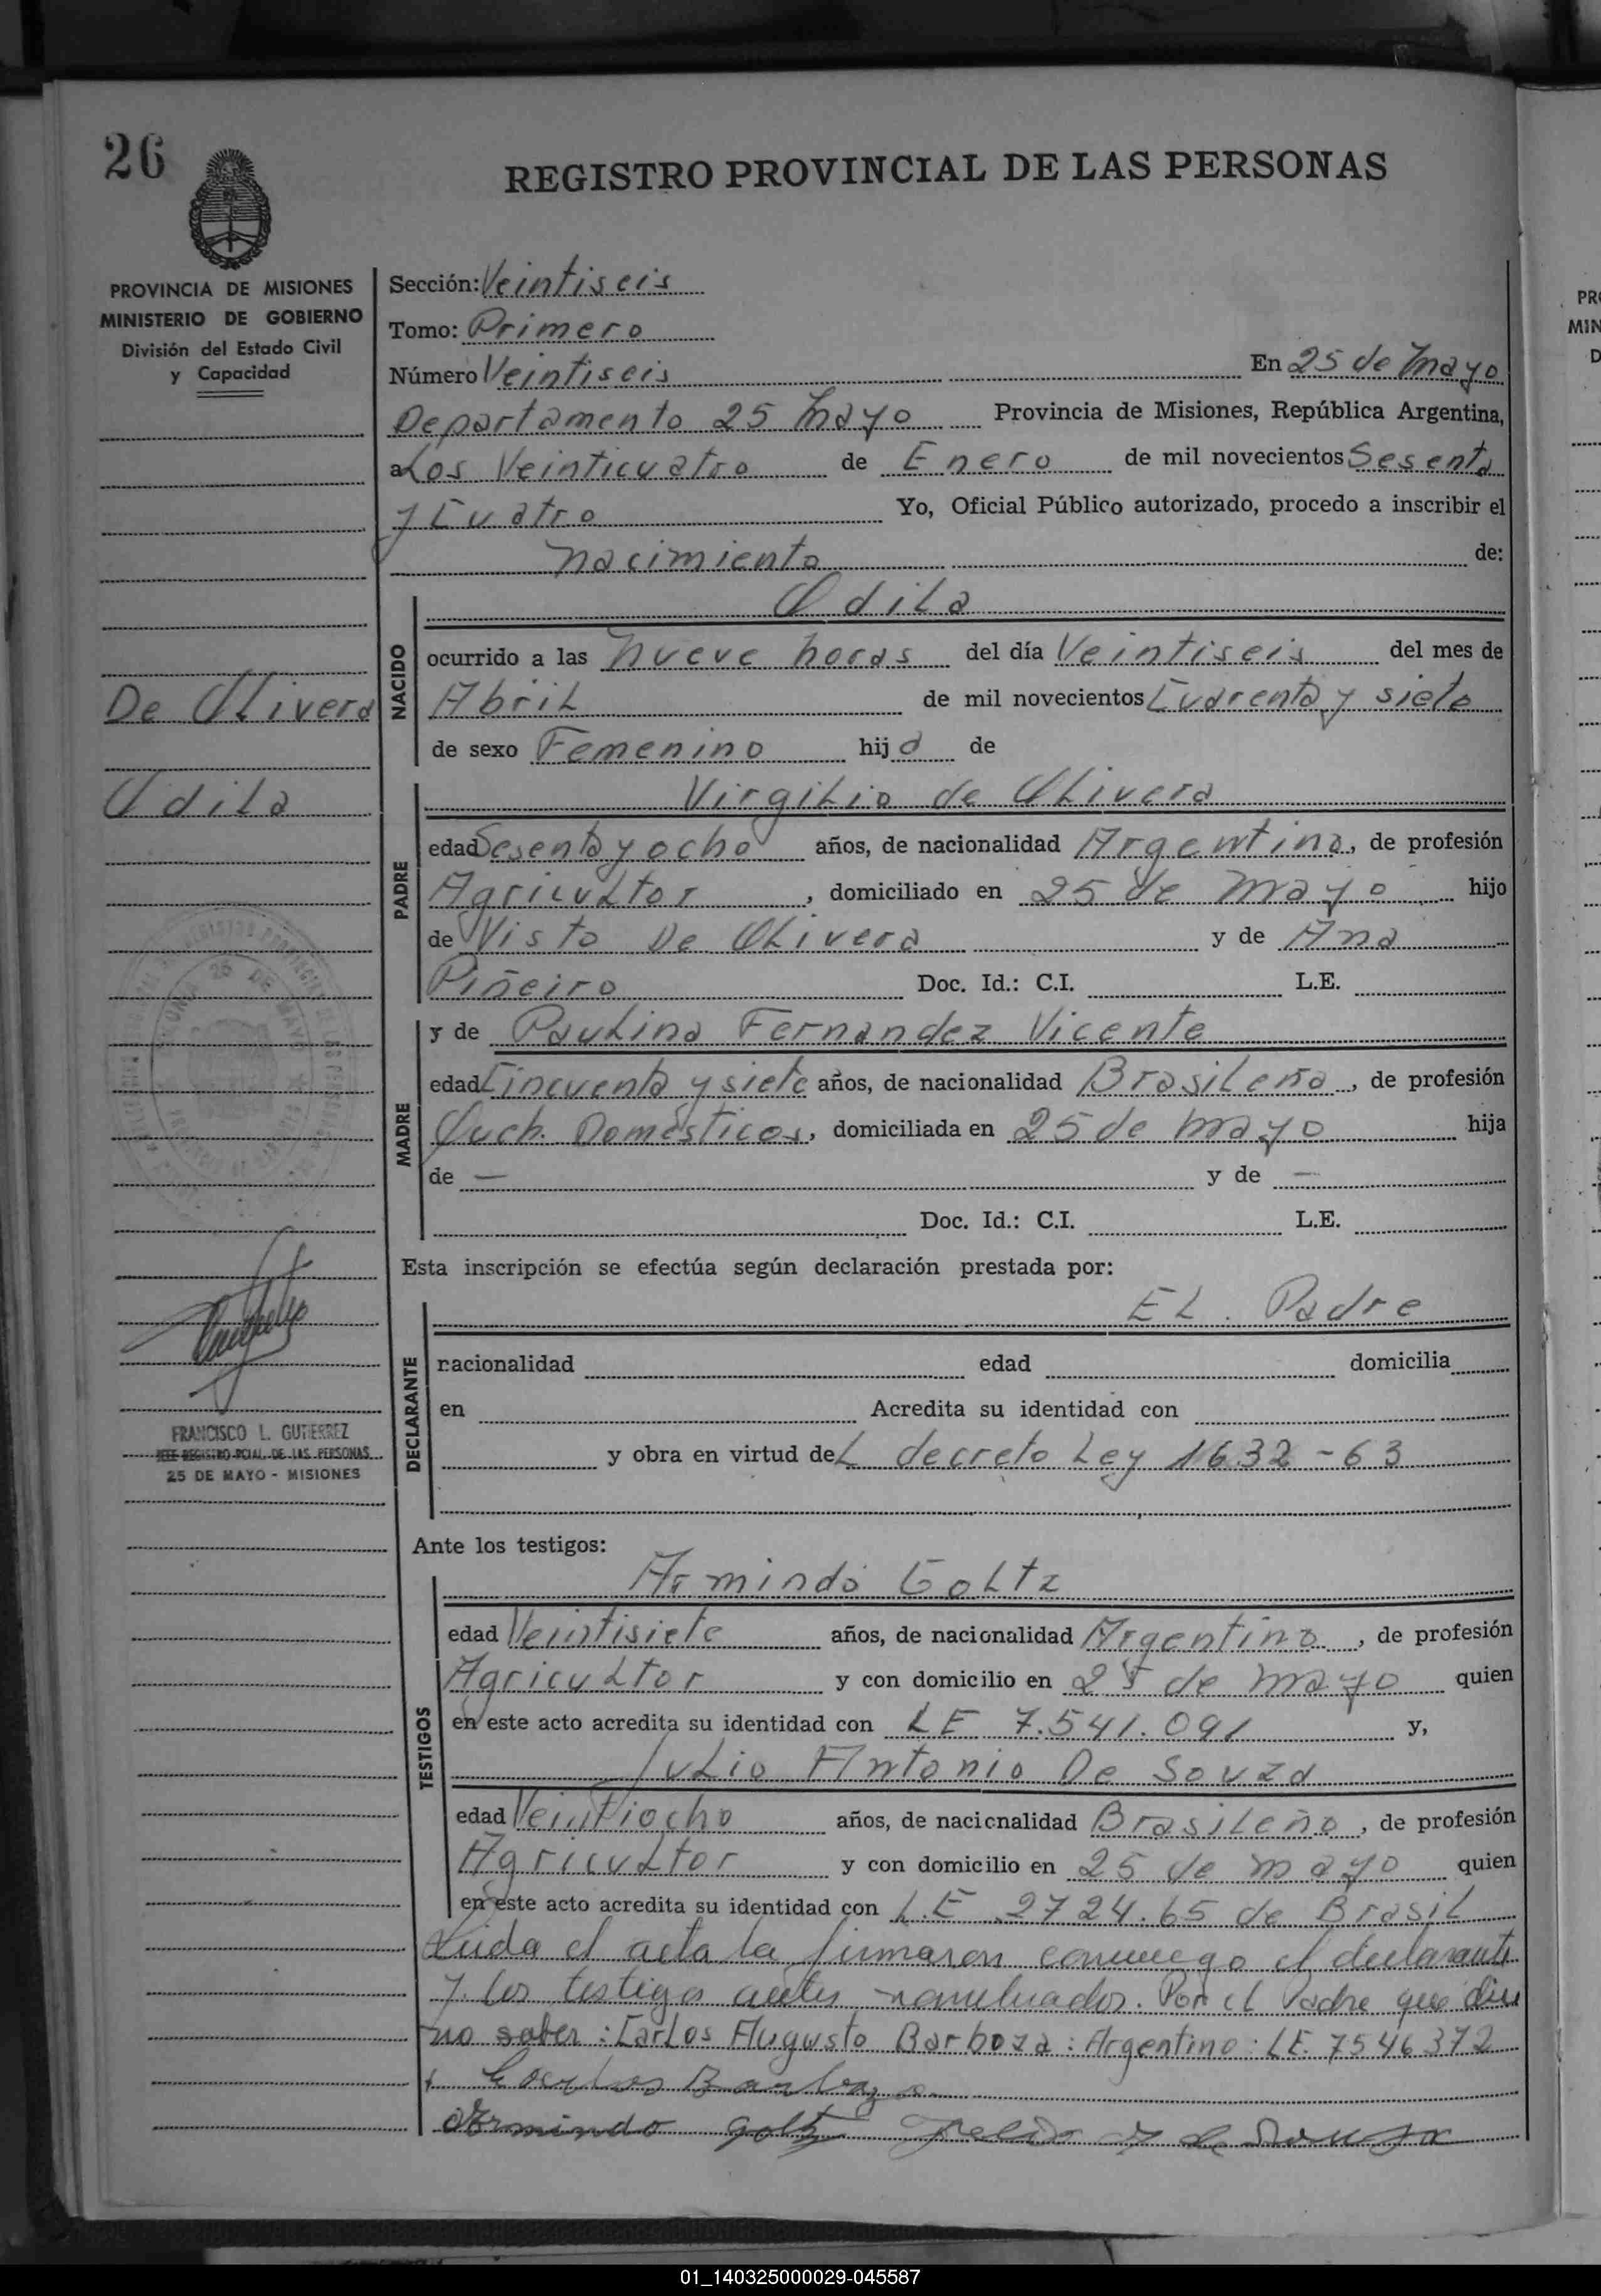 26
REGISTRO PROVINCIAL DE LAS PERSONAS
PROVINCIA DE MISIONES
MINISTERIO DE GOBIERNO
División del Estado Civil
y Capacidad
Sección: Veintiseis
Tomo: Primero
Número Veintiseis En 25 de Mayo
Departamento 25 Mayo Provincia de Misiones, República Argentina,
a Los Veinticuatro de Enero de mil novecientos Sesenta
y Cuatro Yo, Oficial Público autorizado, procedo a inscribir el
nacimiento de:
Odila
NACIDO
ocurrido a las nueve horas del día Veintiseis del mes de
De Olivera
Abril de mil novecientos Cuarenta y siete
de sexo Femenino hija de
Odila
Virgilio de Olivera
PADRE
edad Sesenta y ocho años, de nacionalidad Argentina, de profesión
Agricultor, domiciliado en 25 de mayo hijo
de Visto De Olivera y de Ana
Piñeiro Doc. Id.: C.I. L.E.
y de Paulina Fernandez Vicente
MADRE
edad Cincuenta y siete años, de nacionalidad Brasileña, de profesión
Queh. Domésticos, domiciliada en 25 de mayo hija
de — y de —
Doc. Id.: C.I. L.E.
Esta inscripción se efectúa según declaración prestada por:
EL. Padre
DECLARANTE
nacionalidad edad domicilia
en Acredita su identidad con
y obra en virtud del decreto Ley 1632-63
FRANCISCO L. GUTIERREZ
JEFE REGISTRO PCIAL. DE LAS PERSONAS
25 DE MAYO - MISIONES
Ante los testigos:
Armindo Goltz
TESTIGOS
edad Veintisiete años, de nacionalidad Argentino, de profesión
Agricultor y con domicilio en 25 de mayo quien
en este acto acredita su identidad con LE 7.541.091 y,
Julio Antonio De Souza
edad Veintiocho años, de nacionalidad Brasileño, de profesión
Agricultor y con domicilio en 25 de mayo quien
en este acto acredita su identidad con L.E 2724.65 de Brasil
Leida el acta la firmaron conmigo el declarante
y los testigos antes nombrados. Por el Padre que dice
no saber: Carlos Augusto Barboza: Argentino: LE. 7546372
Carlos Barboza
Armindo Goltz de Souza
01_140325000029-045587